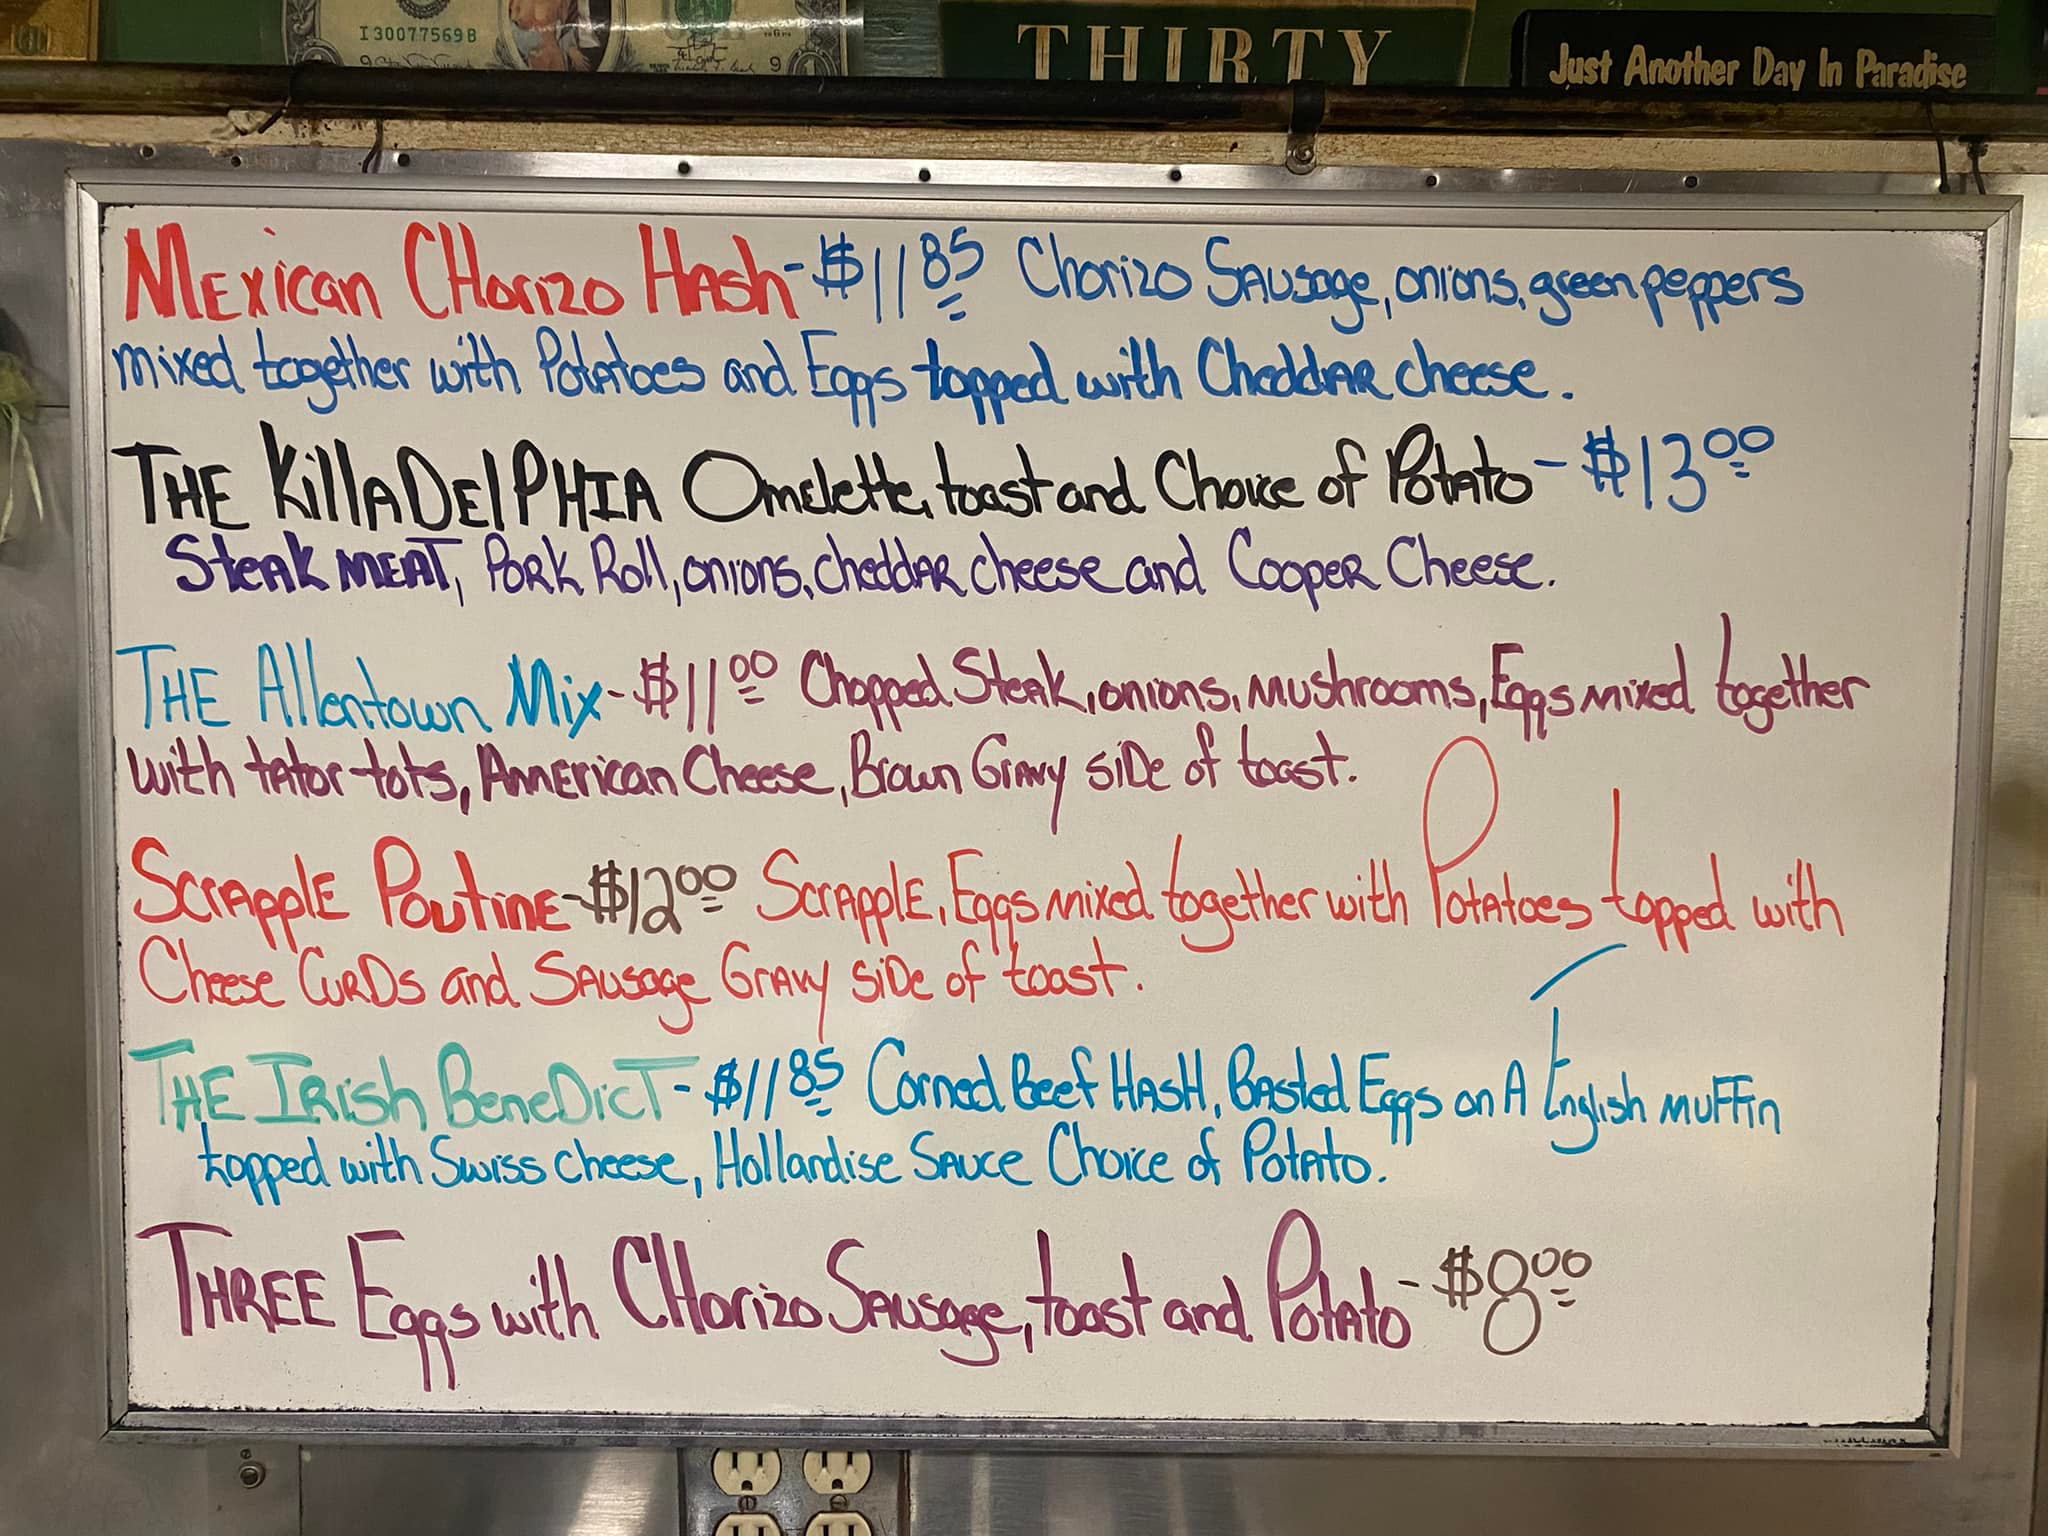 I30077569B
THIRTY
Just Another Day In Paradise
9
9
Mexican CHorizo Hash - $11 85 Chorizo Sausage, onions, green peppers
mixed together with Potatoes and Eggs topped with Cheddar cheese.
THE KillADElPHIA Omelette, toast and Choice of Potato - $13 00
Steak MEAT, Pork Roll, onions, cheddar cheese and Cooper Cheese.
THE Allentown Mix - $11 00 Chopped Steak, onions, Mushrooms, Eggs mixed together
with tator-tots, American Cheese, Brown Gravy side of toast.
Scrapple Poutine - $12 00 Scrapple, Eggs mixed together with Potatoes topped with
Cheese Curds and Sausage Gravy side of toast.
THE Irish BeneDicT - $11 85 Corned Beef HasH, Basted Eggs on A English muffin
topped with Swiss cheese, Hollandise Sauce Choice of Potato.
THREE Eggs with CHorizo Sausage, toast and Potato - $8 00